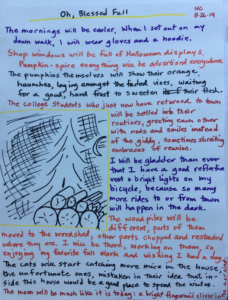 Oh, Blessed Fall
NC
8-26-19
The mornings will be cooler, when I set out on my
dawn walk, I will wear gloves and a hoodie.
Shop windows will be full of Halloween displays,
Pumpkin-spice everything will be advertised everywhere.
The pumpkins themselves will show their orange
haunches, laying amongst the faded vines, waiting
for a good, hard frost to sweeten their flesh.
The college students who just now have returned to town
will be settled into their
routines, greeting each other
with nods and smiles instead
of the giddy, sometimes shrieking
embraces of reunion.
I will be gladder than ever
that I have a good reflective
vest & bright lights on my
bicycle, because so many
more rides to or from town
will happen in the dark.
The woodpiles will be
different, parts of them
moved to the woodshed, other parts chopped and restacked
where they are. I will be there, working on them, so
enjoying my favorite fall work and wishing I had a
The cats will start catching more mice in the house,
the unfortunate ones, mistaken in their idea that in-
side this house would be a good place to spend the winter.
The moon will be much like it is today: a bright fingernail